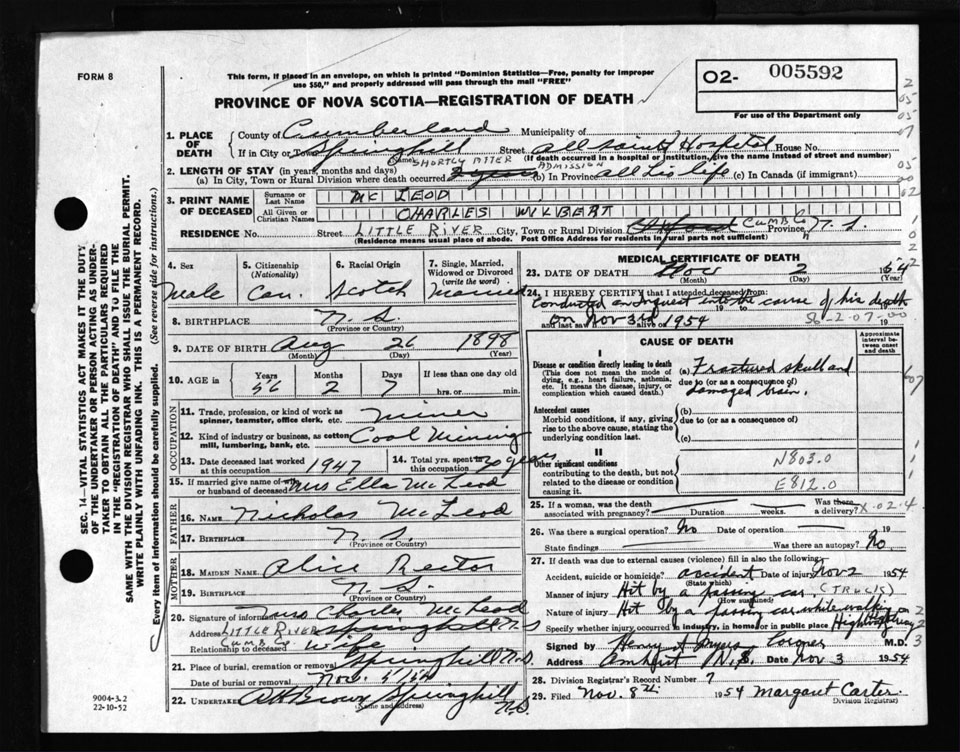 FORM 8
This form, if placed in an envelope, on which is printed "Dominion Statistics—Free, penalty for improper
use $50," and properly addressed will pass through the mail "FREE"
PROVINCE OF NOVA SCOTIA—REGISTRATION OF DEATH
O2- 005592
For use of the Department only
SEC. 14—VITAL STATISTICS ACT MAKES IT THE DUTY
OF THE UNDERTAKER OR PERSON ACTING AS UNDER-
TAKER TO OBTAIN ALL THE PARTICULARS REQUIRED
IN THE "REGISTRATION OF DEATH" AND TO FILE THE
SAME WITH THE DIVISION REGISTRAR WHO SHALL ISSUE THE BURIAL PERMIT.
WRITE PLAINLY WITH UNFADING INK. THIS IS A PERMANENT RECORD.
Every item of information should be carefully supplied. (See reverse side for instructions.)
1. PLACE OF DEATH County of Cumberland Municipality of
If in City or Town Springhill Street All Saints Hospital House No.
(Name) (If death occurred in a hospital or institution, give the name instead of street and number)
2. LENGTH OF STAY (in years, months and days) SHORTLY AFTER ADMISSION
(a) In City, Town or Rural Division where death occurred 2 years (b) In Province all his life (c) In Canada (if immigrant)
3. PRINT NAME OF DECEASED Surname or Last Name MC LEOD
All Given or Christian Names CHARLES WILBERT
RESIDENCE No. Street LITTLE RIVER City, Town or Rural Division Oxford CUMB Co Province N.S.
(Residence means usual place of abode. Post Office Address for residents in rural parts not sufficient)
4. Sex Male
5. Citizenship (Nationality) Can.
6. Racial Origin Scotch
7. Single, Married, Widowed or Divorced (write the word) Married
8. BIRTHPLACE N.S.
(Province or Country)
9. DATE OF BIRTH Aug 26 1898
(Month) (Day) (Year)
10. AGE in Years 56 Months 2 Days 7 If less than one day old
hrs. or min.
OCCUPATION
11. Trade, profession, or kind of work as spinner, teamster, office clerk, etc. Miner
12. Kind of industry or business, as cotton mill, lumbering, bank, etc. Coal Mining
13. Date deceased last worked at this occupation 1947
14. Total yrs. spent in this occupation 20 years
15. If married give name of wife or husband of deceased Mrs Ella McLeod
FATHER
16. Name Nicholas McLeod
17. Birthplace N.S.
(Province or Country)
MOTHER
18. Maiden Name Alice Rector
19. Birthplace N.S.
(Province or Country)
20. Signature of informant Mrs Charles McLeod
Address LITTLE RIVER CUMB Co Springhill N.S
Relationship to deceased Wife
21. Place of burial, cremation or removal Springhill N.S.
Date of burial or removal Nov. 5/54
22. Undertaker A H Brown Springhill N.S.
(Name and address)
9004-3.2
22-10-52
MEDICAL CERTIFICATE OF DEATH
23. DATE OF DEATH Nov 2 1954
(Month) (Day) (Year)
24. I HEREBY CERTIFY that I attended deceased from
Conducted an inquest into the cause of his death
and last saw h alive on 19
on Nov 3rd 1954 S6-2.07-00
CAUSE OF DEATH
Approximate interval between onset and death
I
Disease or condition directly leading to death
(This does not mean the mode of dying, e.g., heart failure, asthenia, etc. It means the disease, injury, or complication which caused death.)
(a) Fractured skull and
due to (or as a consequence of)
damaged brain.
Antecedent causes
Morbid conditions, if any, giving rise to the above cause, stating the underlying condition last.
(b)
due to (or as a consequence of)
(c)
II
Other significant conditions
contributing to the death, but not related to the disease or condition causing it.
N803.0
E812.0
25. If a woman, was the death associated with pregnancy? Duration weeks. Was there a delivery? X.02.4
26. Was there a surgical operation? No Date of operation 19
State findings Was there an autopsy? No.
27. If death was due to external causes (violence) fill in also the following:
Accident, suicide or homicide? accident Date of injury Nov 2 1954
(State which)
Manner of injury Hit by a passing car. (TRUCK)
(How sustained)
Nature of injury Hit by a passing car while walking on
Specify whether injury occurred in industry, in home or in public place Highway
Signed by Henry A Myers Coroner M.D.
Address Amherst N.S. Date Nov 3 1954
28. Division Registrar's Record Number 7
29. Filed Nov. 8th. 1954 Margaret Carter.
Division Registrar)